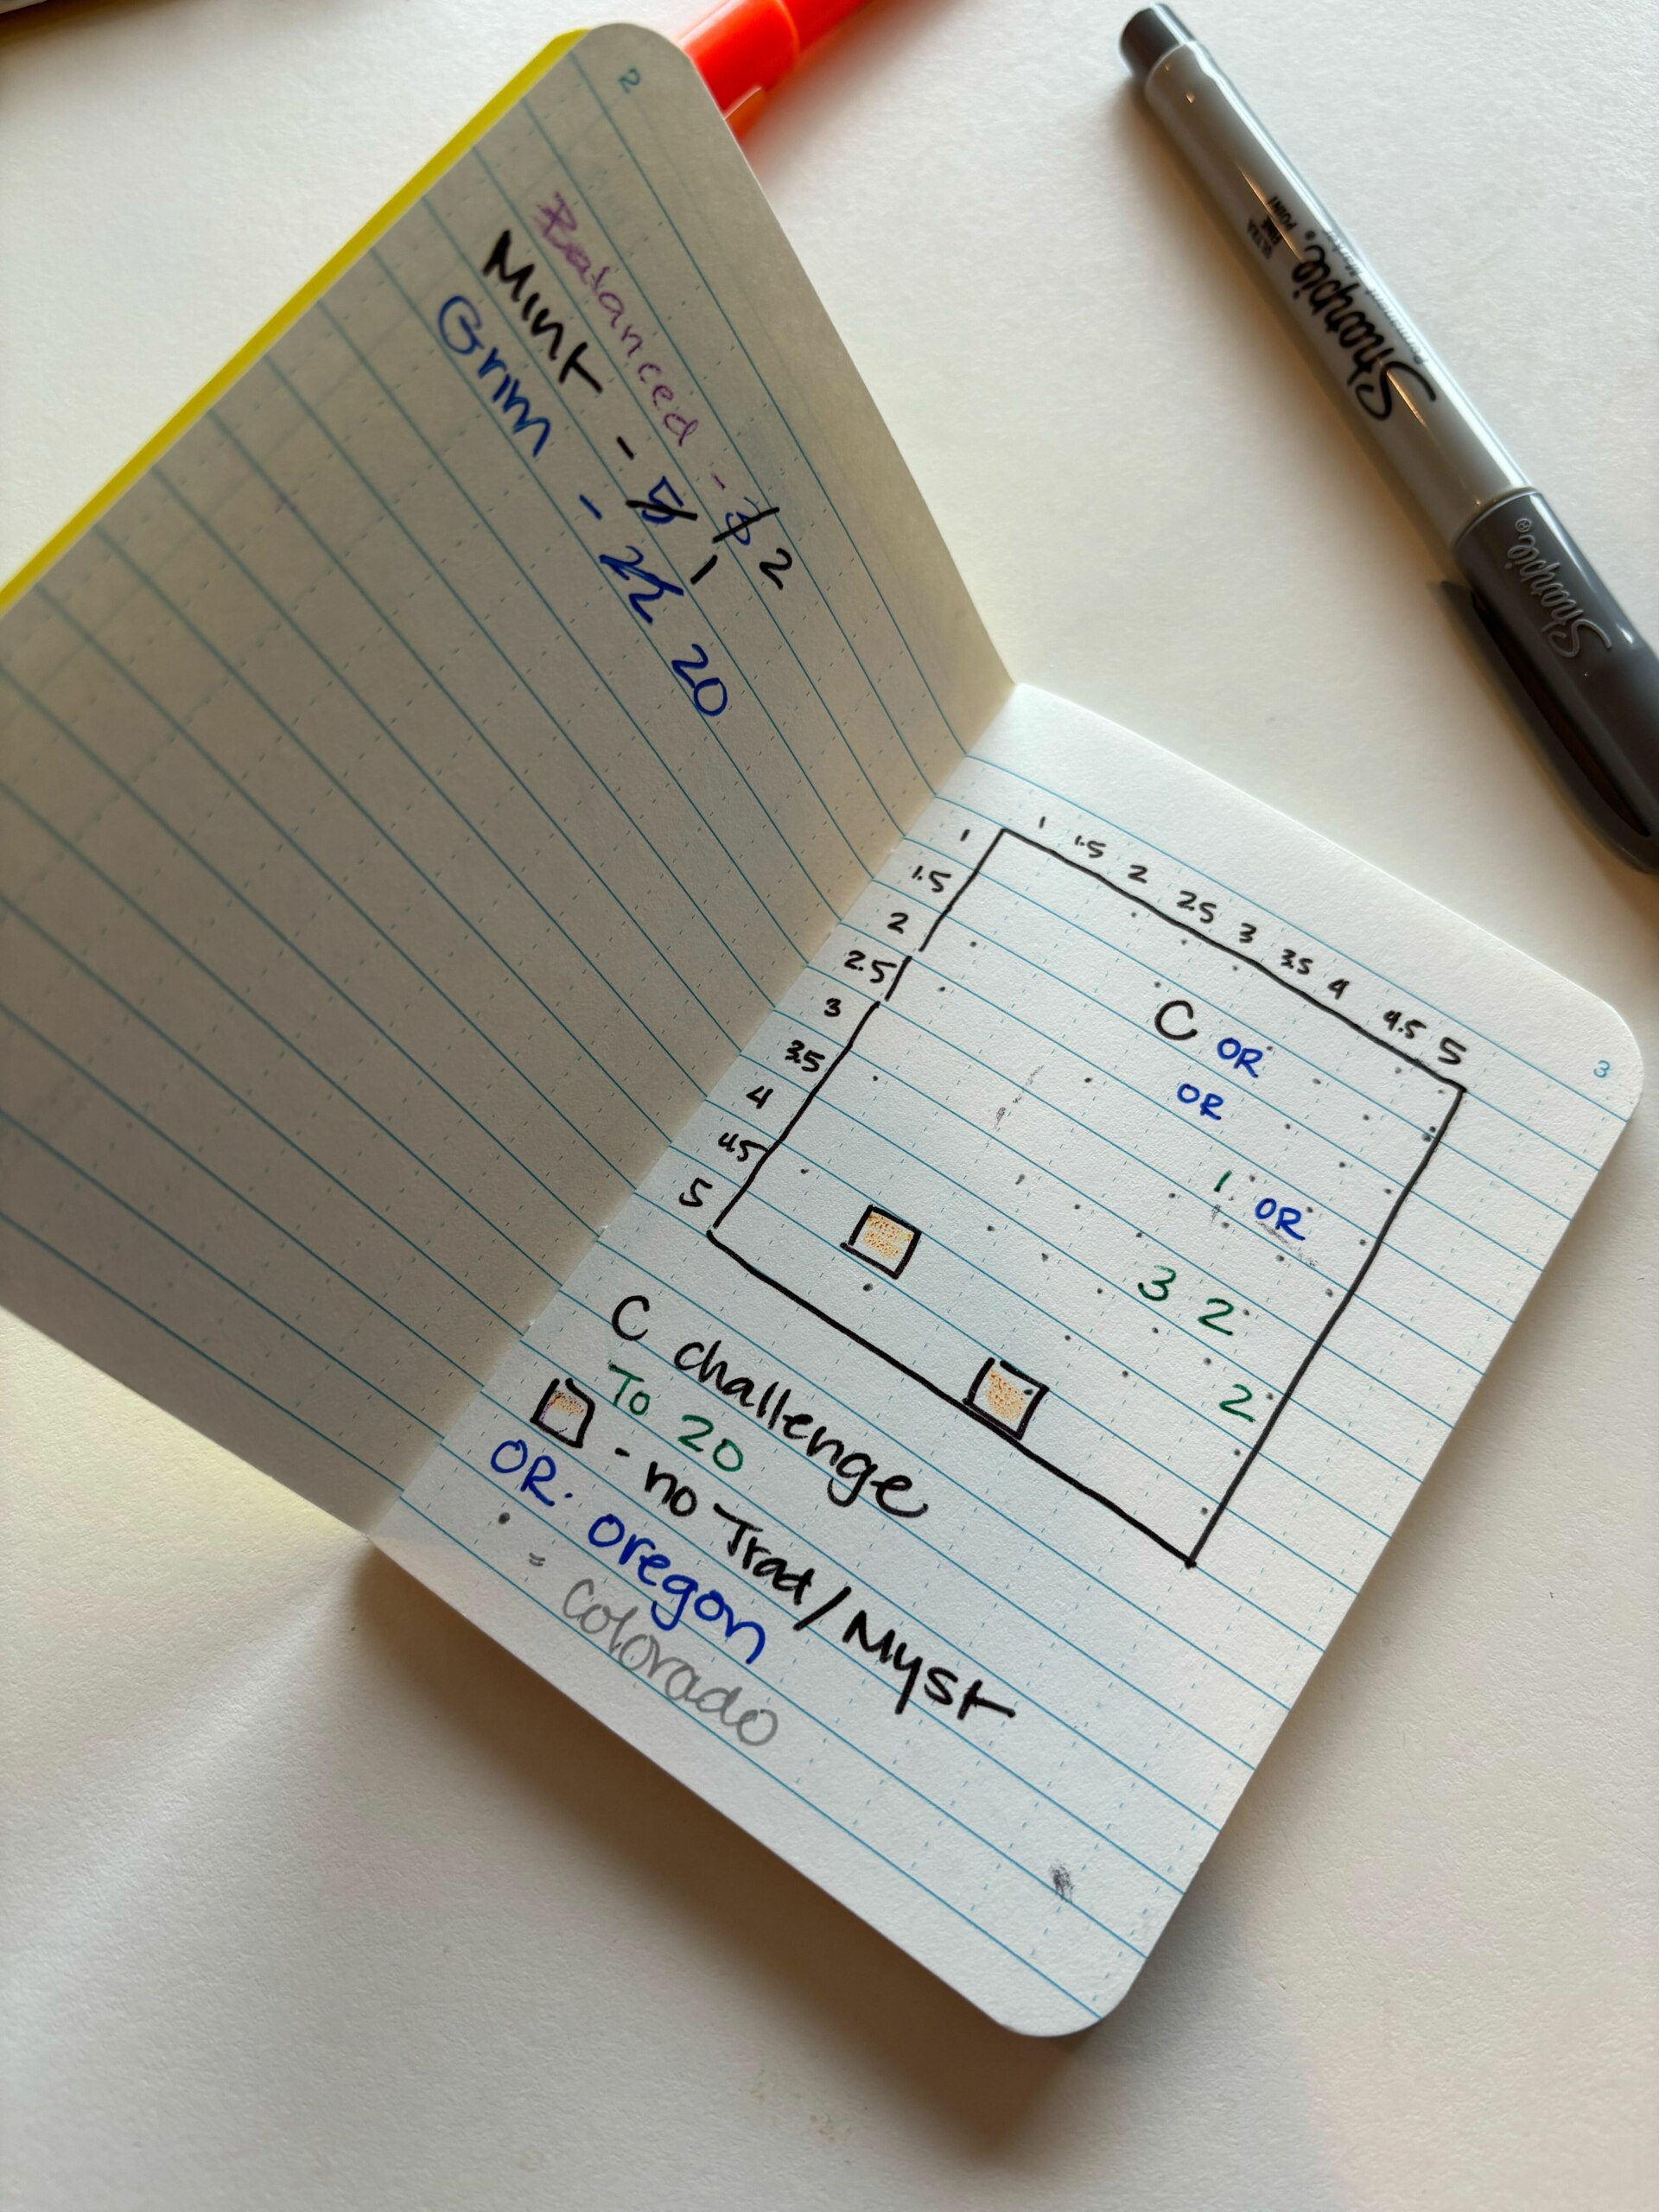 2
Balanced - 3 2
Mint - 5 1
Grim - 22 20
3
1 1.5 2 2.5 3 3.5 4 4.5 5
1
1.5
2
2.5
3
3.5
4
4.5
5
C OR
OR
1 OR
3 2
2
C challenge
To 20
- no Trad/Myst
OR. oregon
= colorado
Sharpie®
Permanent Marker
ULTRA FINE POINT
Sharpie®